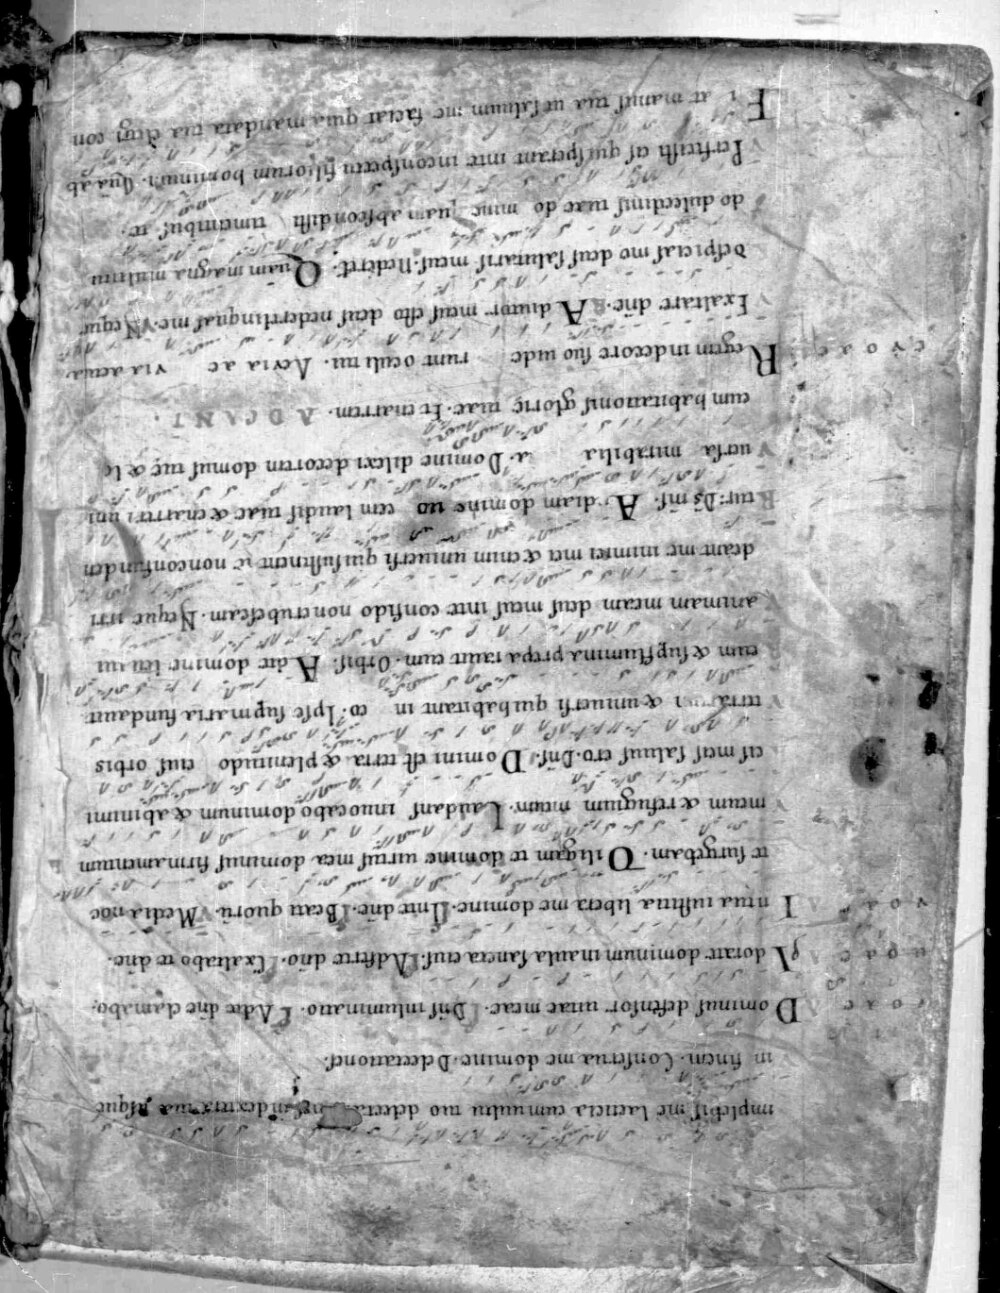 implebis me laeticia cum uultu tuo delectationes in dextera tua usque
in finem. Conserua me domine. Delectationes.
Dominus defensor uitae meae. Dns inluminatio. Ad te dne clamabo.
Adorate dominum in aula sancta eius. Adferte dno. Exaltabo te dne.
In tua iustitia libera me domine. In te dne. Beati quorum. Media noc
te surgebam. Diligam te domine uirtus mea dominus firmamentum
meum et refugium meum. Laudans inuocabo dominum et ab inimi
cis meis saluus ero. Dns. Domini est terra et plenitudo eius orbis
terrarum et uniuersi qui habitant in eo. Ipse sup maria fundauit
eum et sup flumina prepa rauit eum. Orbis. Ad te domine leuaui
animam meam deus meus in te confido non erubescam. Neque irri
deant me inimici mei et enim uniuersi qui sustinent te non confunden
tur. Ds ms. Audiam domine uo cem laudis tuae et enarrem uni
uersa mirabilia a. Domine dilexi decorem domus tue et lo
cum habitationis glorie tuae. Et enarrem. AD CANT.
Regem in decore suo uide runt oculi tui. Aevia ae via aeuia
Exaltare dne. Adiutor meus esto deus ne derelinquas me. Neque
despicias me deus salutaris meus. Ne derel. Quam magna multitu
do dulcedinis tuae do mine quam abscondisti timentibus te.
Perfecisti as qui sperant in te in conspectu filiorum hominum. Qua ab
Fiat manus tua ut saluum me faciat quia mandata tua elegi con